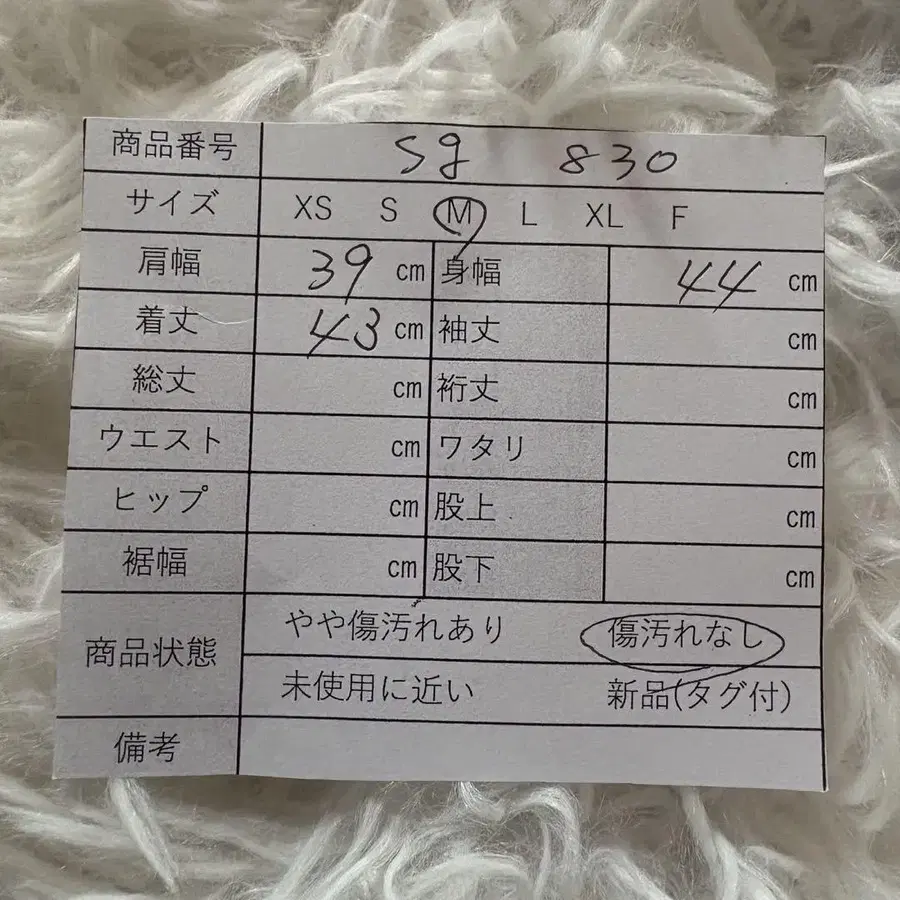 商品番号 sg 830
サイズ XS S M L XL F
肩幅 39 cm 身幅 44 cm
着丈 43 cm 袖丈 cm
総丈 cm 裄丈 cm
ウエスト cm ワタリ cm
ヒップ cm 股上 cm
裾幅 cm 股下 cm
商品状態 やや傷汚れあり 傷汚れなし
未使用に近い 新品(タグ付)
備考